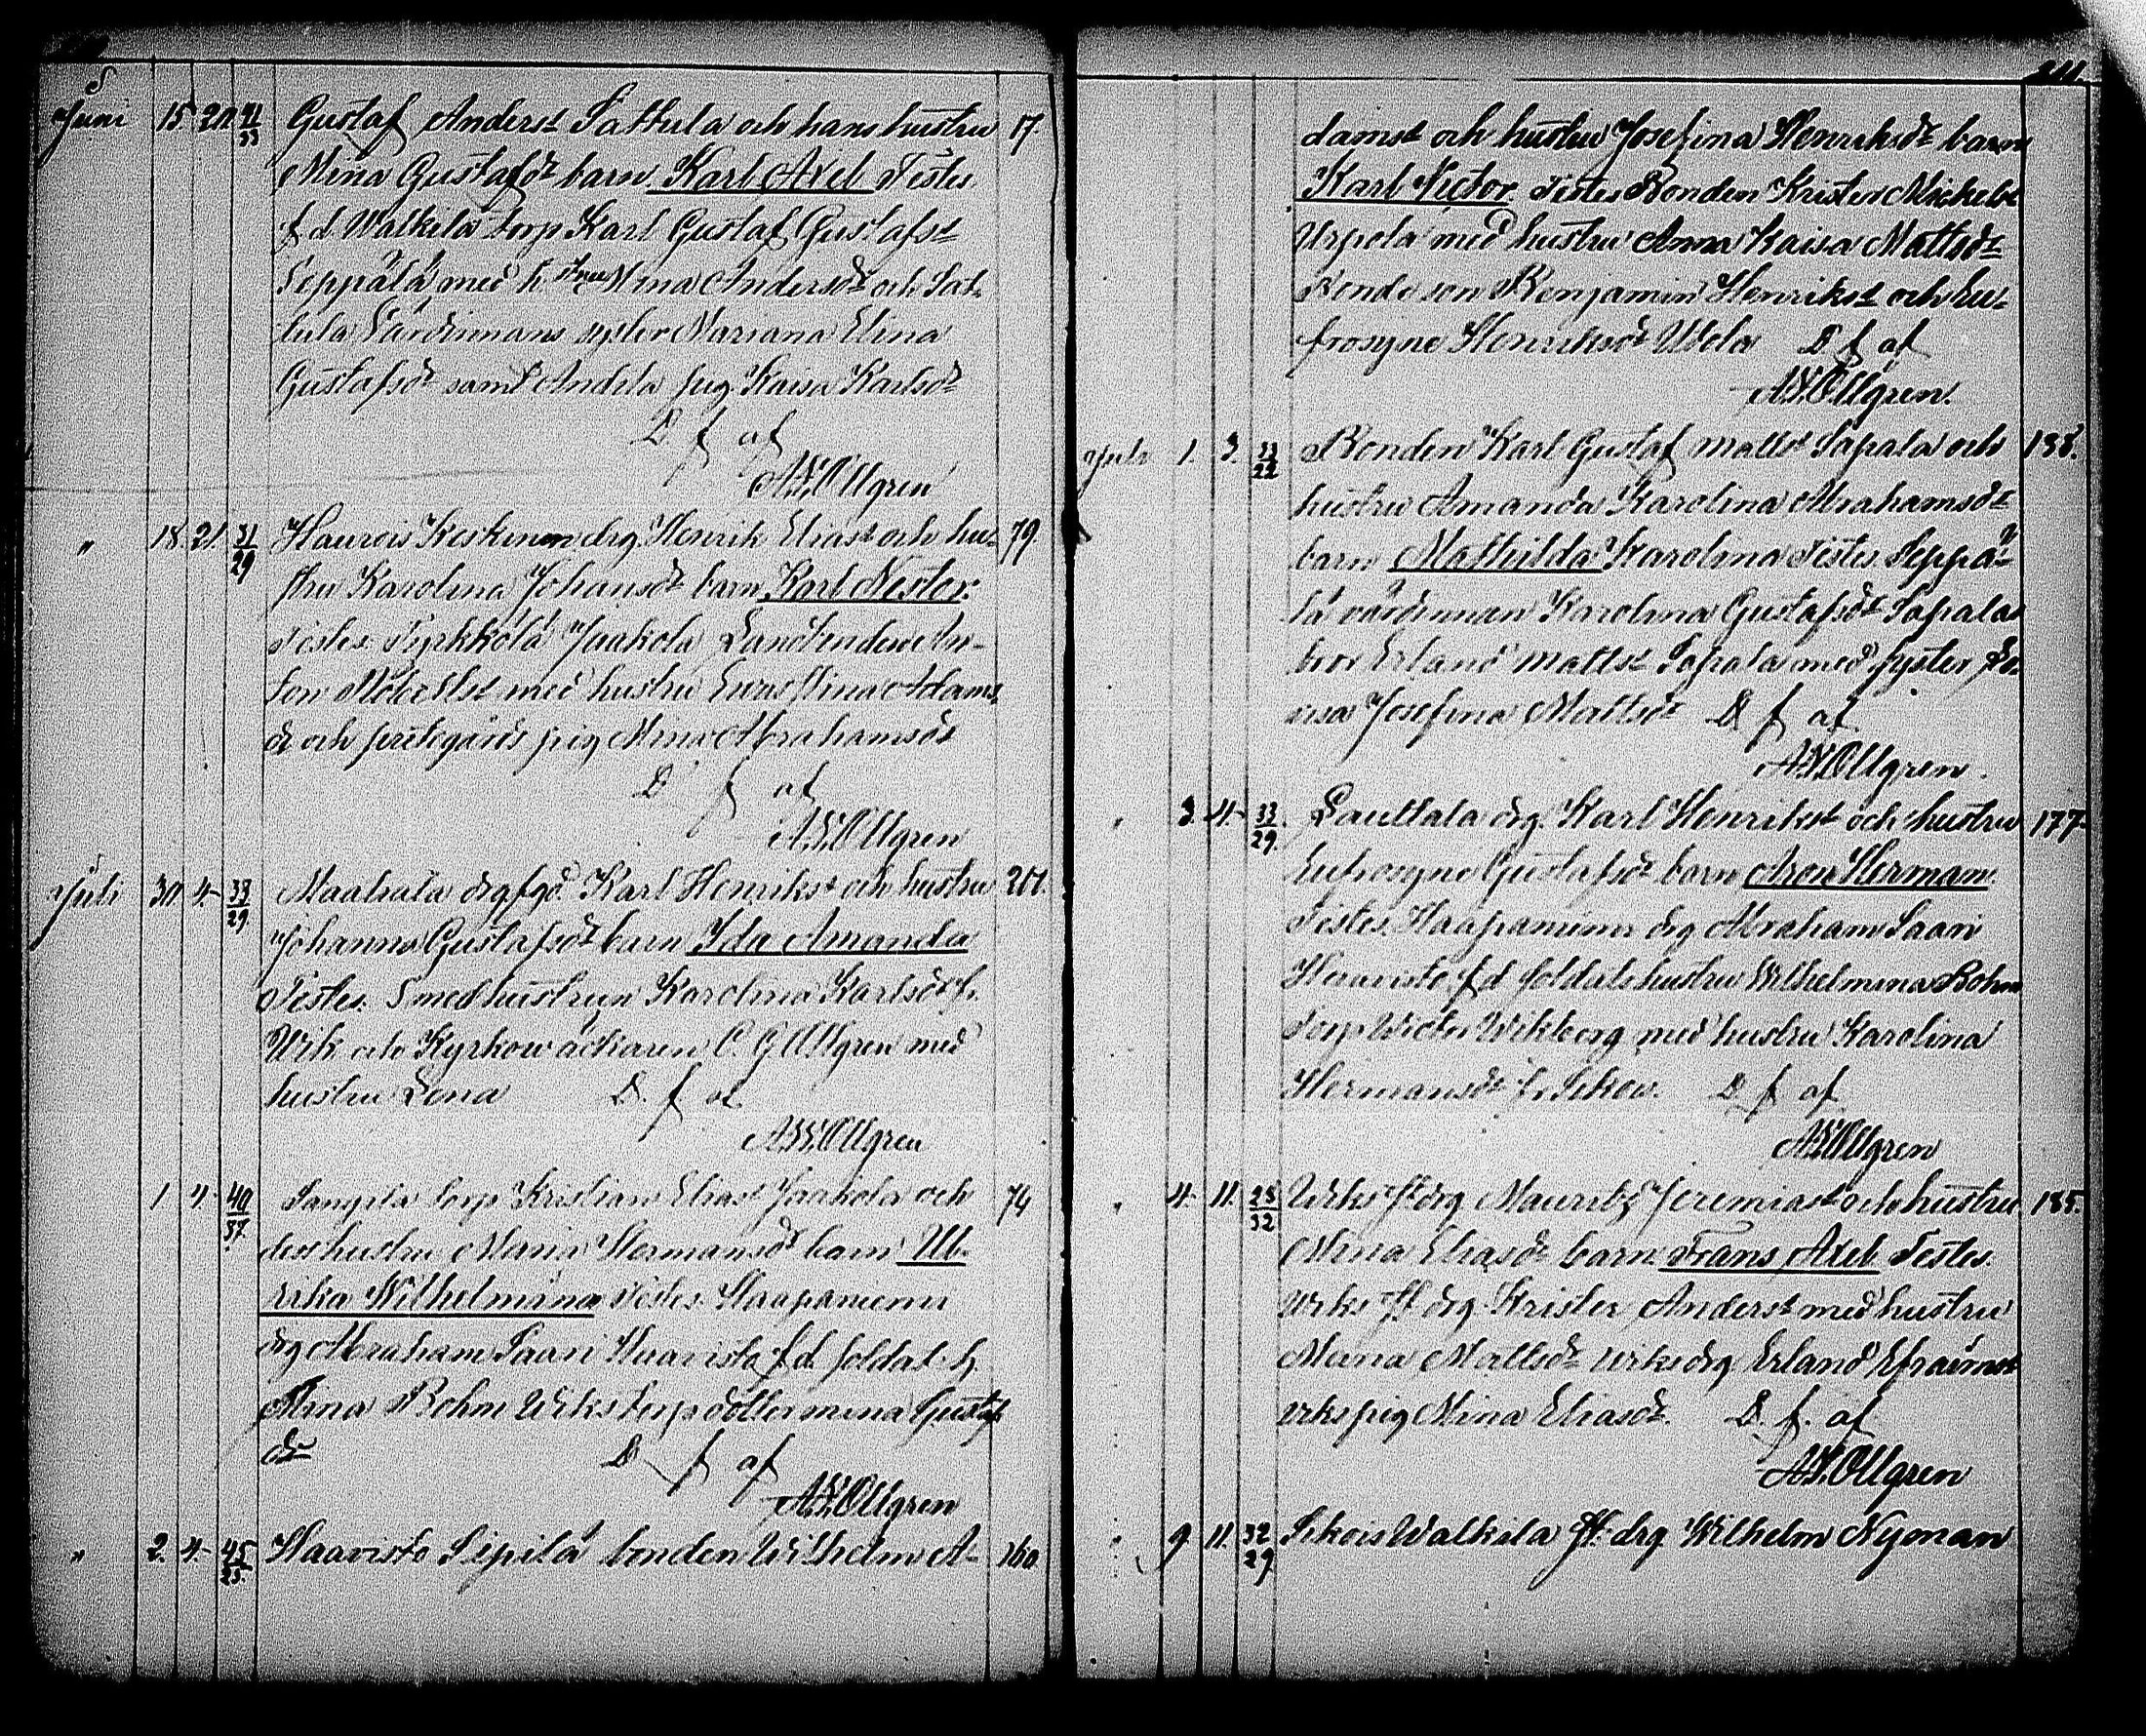 Juni 15 20 41/33 Gustaf Anderst Sattula och hans hustru 17.
Mina Gustafsdr barn Karl Axel Testes.
f d. Walkila torp Karl Gustaf Gustafst
Seppälä med h Mina Andersdr och Sat-
tula Värdinnans syster Mariana Elina
Gustafsdr samt Andela pig. Kaisa Karlsdr
D f af
A.W.Ollgren
" 18. 21. 31/29 Haurois Keskinen drg. Henrik Eliast och hu- 79.
stru Karolina Johansdr barn Karl Nestor.
Testes Jaakola Landbonden An-
ton med hustru Adams
dr och pig Mina Abrahamsdr
D f af
A.W.Ollgren
Juli 30 4. 33/29 drg Karl Henrikst och hustru 201.
Johanna Gustafsdr barn Ida Amanda
Testes. Smedhustrun Karolina Karlsdr fr.
Wik och Kyrkowäktaren C. G. Ollgren med
hustru Lena D. f af
A.W.Ollgren
1 4. 40/37. torp Kristian Eliast Jaakola och 74
dess hustru Maria Hermansdr barn Ul-
rika Wilhelmina Testes. Haapaniemi
drg Abraham Saari Haavisto f d. soldat h.
Mina Bohm Wiks torp dotter Mina Gustaf
dr D f af
A.W.Ollgren
" 2. 4. 45/25. Haavisto Sipilä bonden Wilhelm A- 160
211
damst och hustru Josefina Henriksdr barn
Karl Victor. Testes Bonden Krister Michelst
Urpola med hustru Anna Kaisa Mattsdr
Bonde son Benjamin Henrikst och Eu-
frosyne Henriksdr Uvela D f af
A.W.Ollgren.
Juli 1. 3. 33/22 Bonden Karl Gustaf Mattst Sapala och 138.
hustru Amanda Karolina Abrahamsdr
barn Mathilda Karolina Testes. Seppä-
lä värdinnan Karolina Gustafsdr Sapala
bror Erland Mattst Sapala med syster Lo-
visa Josefina Mattsdr D f af
A.W.Ollgren.
" 3. 4. 33/29. Lauttala drg. Karl Henrikst och hustru 177.
Eufrosyne Gustafsdr barn Aron Herman.
Testes. Haapaniemi drg Abraham Saari
Haavisto f d soldatehustru Wilhelmina Bohm
Torp Wictor Wikberg med hustru Karolina
Hermansdr D f af
A.W.Ollgren
" 4. 11. 25/32 Wiks drg Mauritz Jeremiast och hustru 185.
Mina Eliasdr barn Frans Axel Testes.
Wiks drg Krister Anderst med hustru
Maria Mattsdr Wiks drg Erland Efraimst
Wiks pig Mina Eliasdr. D. f. af
A.W.Ollgren
" 9. 11. 32/29. Walkila drg Wilhelm Nyman